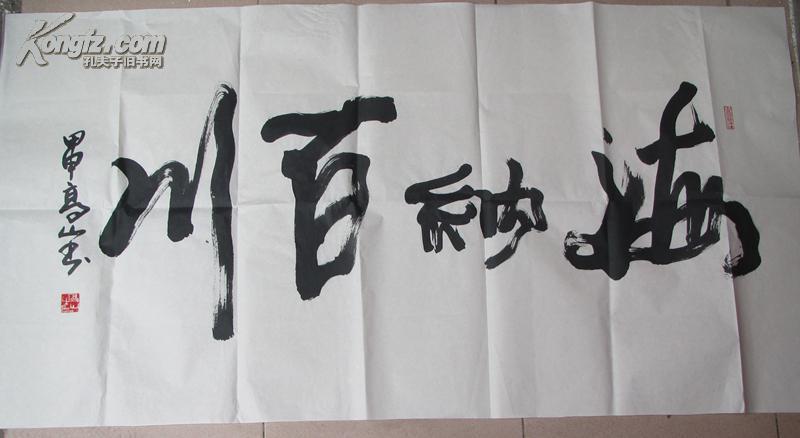 海纳百川
甲申高山书
Kongfz.com
孔夫子旧书网